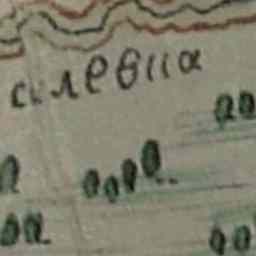 силевиа